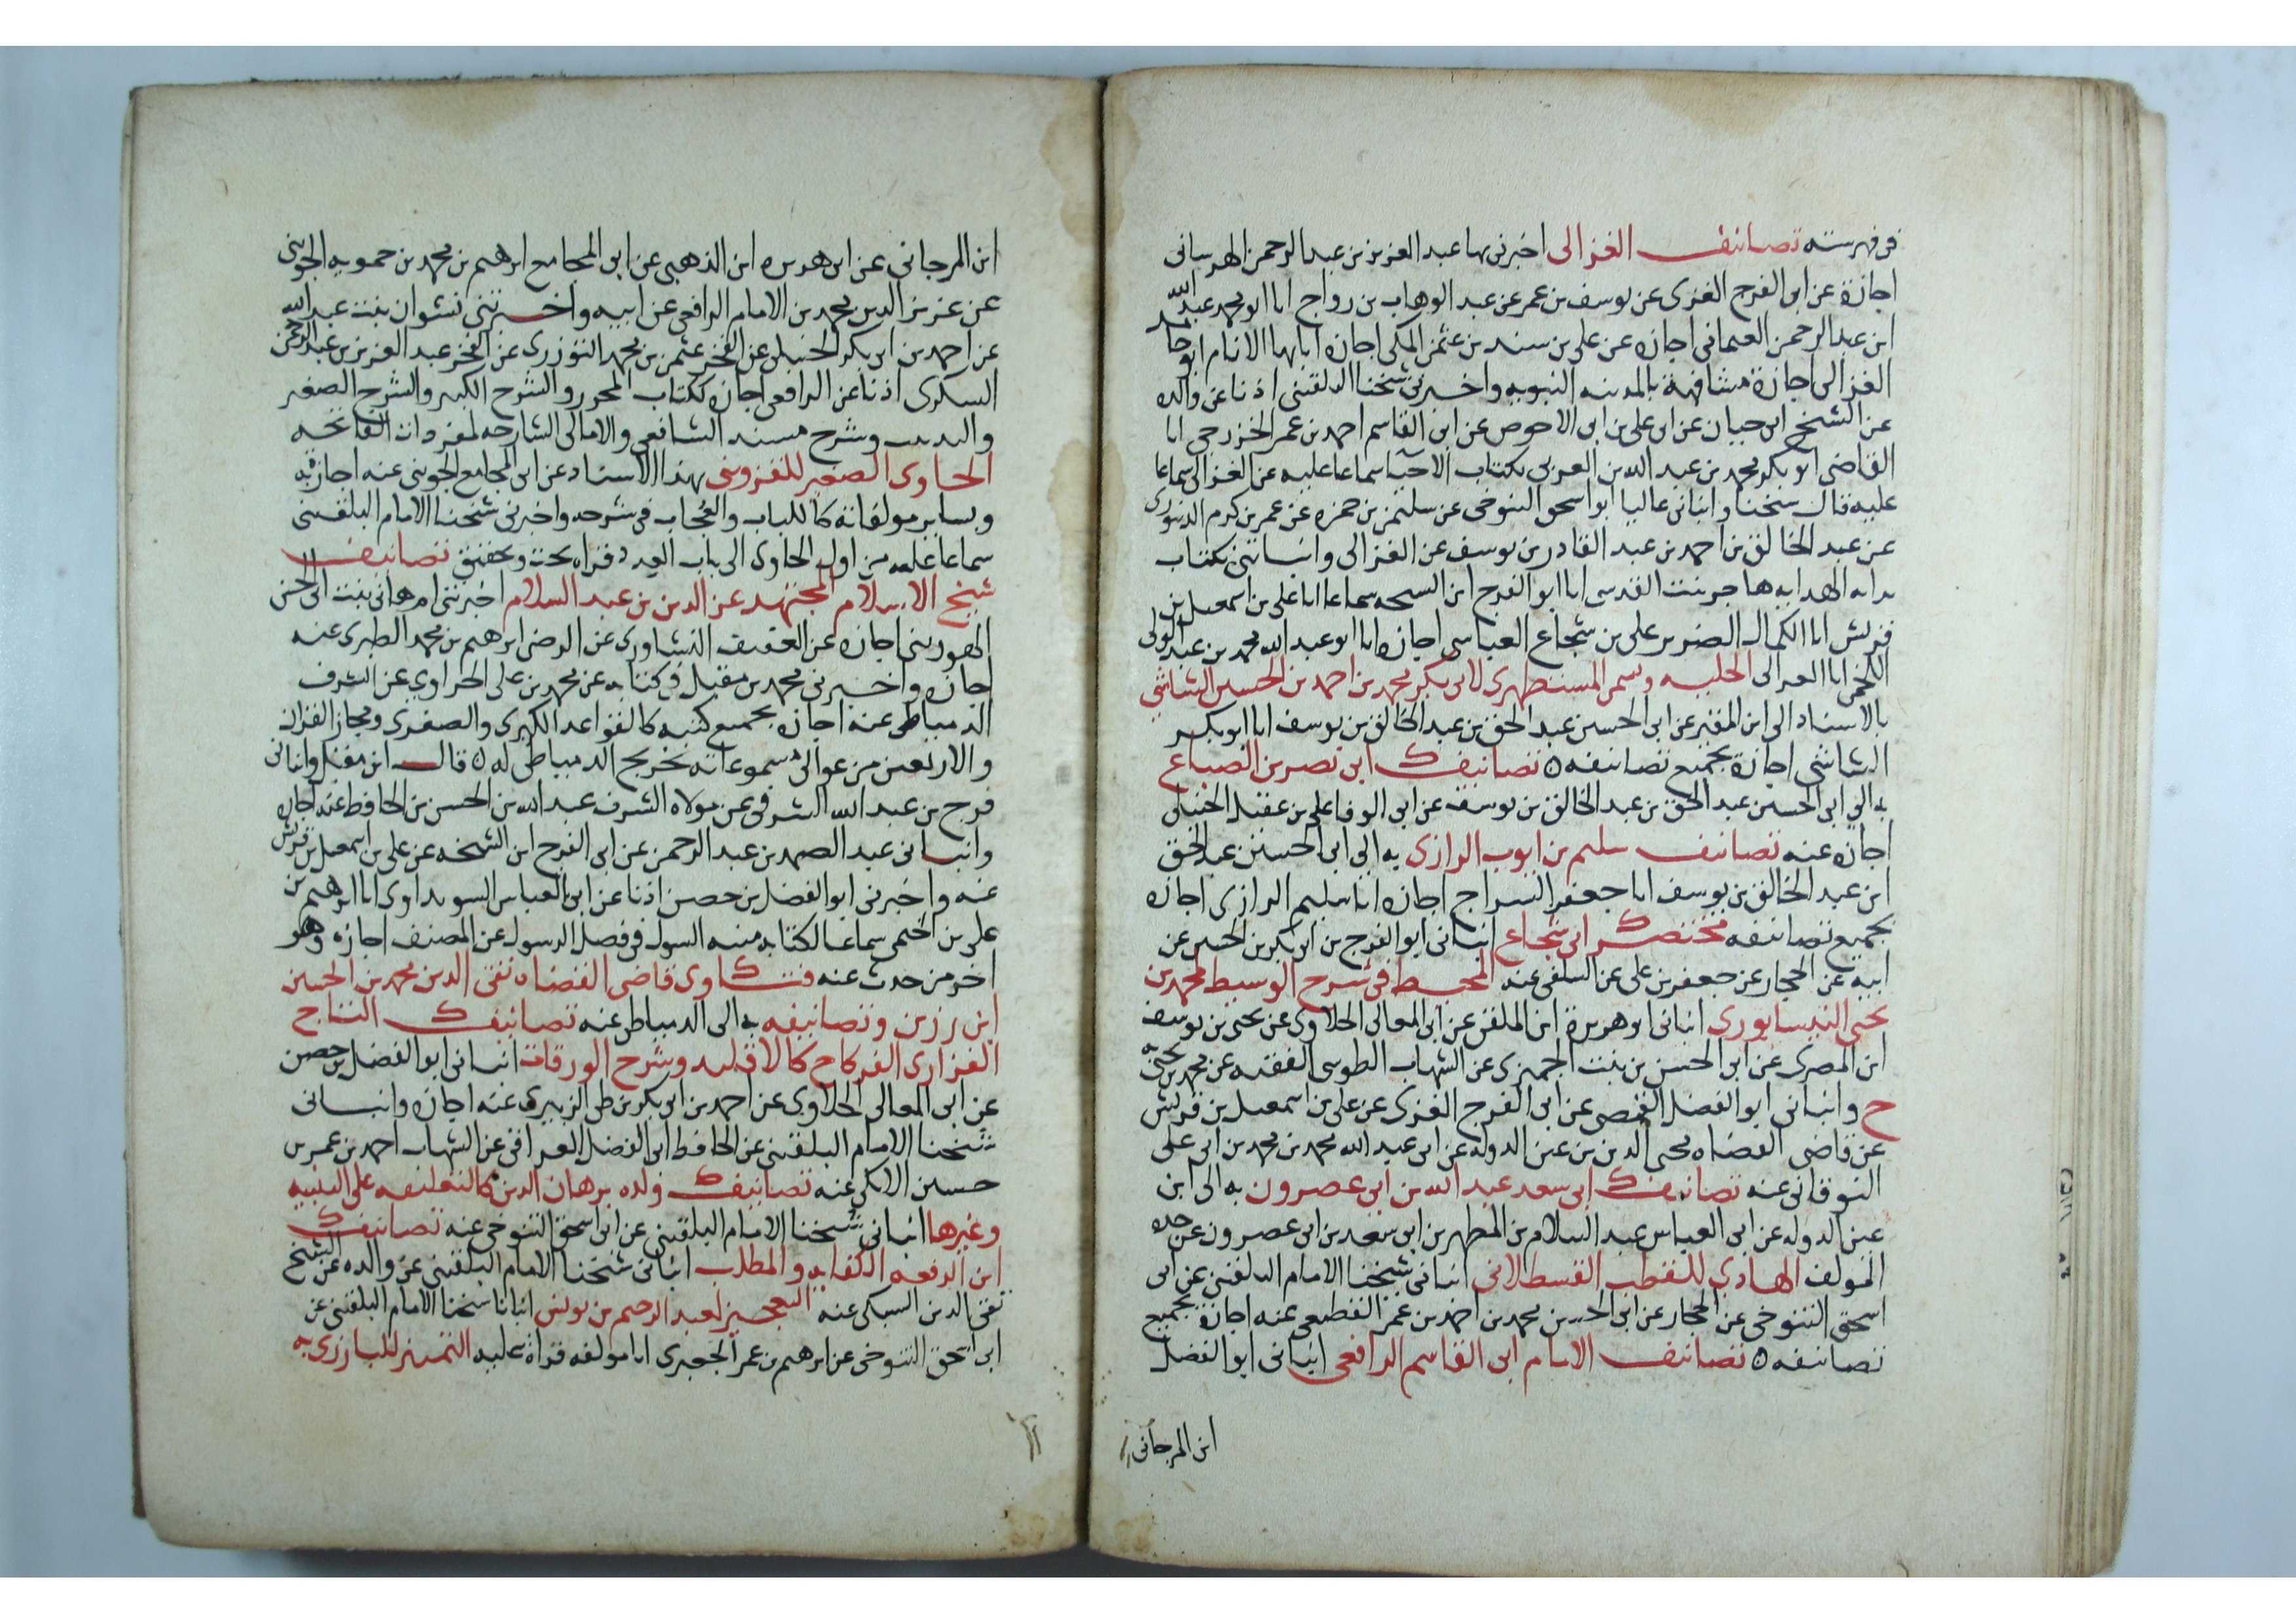 فى فهرسته تصانيف الغزالى اخبرنى بها عبد العزيز بن عبد الرحمن الهرسانى
اجازة عن ابى الفرج الغزى عن يوسف بن عمر عن عبد الوهاب بن رواج انا ابو محمد عبد الله
ابن عبد الرحمن العثمانى اجازه عن على بن سند بن عثمن المكى اجازه انا بها الامام ابو حامد
الغزالى اجازة مشافهة بالمدينه النبويه واخبرنى شيخنا البلقينى اذنا عن والده
عن الشيخ ابى حيان عن ابى على بن ابى الاحوص عن ابى القاسم احمد بن عمر الخزرجى انا
القاضى ابو بكر محمد بن عبد الله بن العربى بكتاب الاحيا سماعا عليه عن الغزالى سماعا
عليه قال شيخنا وانبانى عاليا ابو اسحق التنوخى عن سليمن بن حمزه عن عمر بن كرم الدينورى
عن عبد الخالق بن احمد بن عبد القادر بن يوسف عن الغزالى وانباتنى بكتاب
بدايه الهدايه هاجر بنت القدسى انا ابو الفرج ابن الشيخه سماعا انا على بن اسمعيل بن
قريش انا الكمال الضرير على بن شجاع العباسى اجازه انا ابو عبد الله محمد بن عبد المولى
اللخمى انا الغزالى الحليه وسمى المستظهرى لابى بكر محمد بن احمد بن الحسين الشاشى
بالاسناد الى ابن المقير عن ابى الحسين عبد الحق بن عبد الخالق بن يوسف انا ابو بكر
الشاشى اجازة بجميع تصانيفه ٥ تصانيف ابى نصر بن الصباغ
به الى ابى الحسين عبد الحق بن عبد الخالق بن يوسف عن ابى الوفا على بن عقيل الحنبلى
اجازه عنه تصانيف سليم بن ايوب الرازى به الى ابى الحسين عبد الحق
ابن عبد الخالق بن يوسف انا جعفر السراج اجازه انا سليم الرازى اجازه
بجميع تصانيفه مختصر ابى شجاع انبانى ابو الفرج بن ابى بكر بن الحسين عن
ابيه عن الحجار عن جعفر بن على عن السلفى عنه المحيط فى شرح الوسيط لمحمد بن
يحيى النيسابورى انبانى ابو هريرة ابن الملقن عن ابى المعالى الحلاوى عن يحيى بن يوسف
ابن المصرى عن ابى الحسن بن بنت الجميزى عن الشهاب الطوسى الفقيه عن محمد بن يحيى
ح وانبانى ابو الفضل المحصى عن ابى الفرج الغزى عن على بن اسمعيل بن قريش
عن قاضى القضاه محيى الدين بن عين الدوله عن ابى عبد الله محمد بن محمد بن ابى على
النوقانى عنه تصانيف ابى سعد عبد الله بن ابى عصرون به الى ابن
عين الدوله عن ابى العباس عبد السلام بن المطهر بن ابى سعد بن ابى عصرون عن جده
المولف الهادى للقطب القسطلانى انبانى شيخنا الامام البلقينى عن ابى
اسحق التنوخى عن الحجار عن ابى الحسن محمد بن احمد بن عمر القطيعى عنه اجازة بجميع
تصانيفه ٥ تصانيف الامام ابى القاسم الرافعى انبانى ابو الفضل
ابن المرجانى
ابن المرجانى عن ابى هريره ابن الذهبى عن ابى المجامع ابرهيم بن محمد بن حمويه الجوينى
عن عزيز الدين محمد بن الامام الرافعى عن ابيه واخبرتنى نشوان بنت عبد الله
عن احمد بن ابى بكر الحنبلى عن الفخر عثمن بن محمد التوزرى عن الفخر عبد العزيز بن عبد الرحمن
السكرى اذنا عن الرافعى اجازه ككتاب المحرر والشرح الكبير والشرح الصغير
والتدنيب وشرح مسند الشافعى والامالى الشارحه لمفردات الفاتحه
الحاوى الصغير للقزوينى بهذا الاسناد عن ابى المجامع الجوينى عنه اجازة به
وبساير مولفاته كاللباب والعجاب فى شرحه واخبرنى شيخنا الامام البلقينى
سماعا عليه من اول الحاوى الى باب العدد قراه بحث وتحقيق تصانيف
شيخ الاسلام المجتهد عز الدين بن عبد السلام اخبرتنى ام هانى بنت ابى الحسن
الهورينى اجازه عن العفيف النشاورى عن الرضى ابرهيم بن محمد الطبرى عنه
اجازه واخبرنى محمد بن مقبل فى كتابه عن محمد بن على الحراوى عن الشرف
الدمياطى عنه اجازه بجميع كتبه كالقواعد الكبرى والصغرى ومجاز القران
والاربعين من عوالى مسموعاته تخريج الدمياطى له ٥ قال ابن مقبل وانبانى
فرج بن عبد الله الشرفى عن مولاه الشرف عبد الله بن الحسن بن الحافظ عنه اجازه
وانبانى عبد الصمد بن عبد الرحمن عن ابى الفرج ابن الشيخه عن على بن اسمعيل بن قريش
عنه واخبرنى ابو الفضل بن حصن اذنا عن ابى العباس السويداوى انا ابرهيم بن
على بن الخيمى سماعا لكتابه منيه السول فى فضل الرسول عن المصنف اجازه وهو
اخر من حدث عنه فتاوى قاضى القضاه تقى الدين محمد بن الحسين
ابن رزين وتصانيفه به الى الدمياطى عنه تصانيف التاج
الفزارى الفركاح كالاقليد وشرح الورقات انبانى ابو الفضل بن حصن
عن ابى المعالى الحلاوى عن احمد بن ابى بكر بن طى الزبيرى عنه اجازه وانبانى
شيخنا الامام البلقينى عن الحافظ ابى الفضل العراقى عن الشهاب احمد بن عمر بن
حسين الايكى عنه تصانيف ولده برهان الدين كالتعليقه على التنبيه
وغيرها انبانى شيخنا الامام البلقينى عن ابى اسحق التنوخى عنه تصانيف
ابن الرفعه الكفايه والمطلب انبانى شيخنا الامام البلقينى عن والده عن الشيخ
تقى الدين السبكى عنه التعجيز لعبد الرحيم بن يونس انبانا شيخنا الامام البلقينى عن
ابى اسحق التنوخى عن ابرهيم بن عمر الجعبرى انا مولفه قراة عليه التمييز للبارزى به